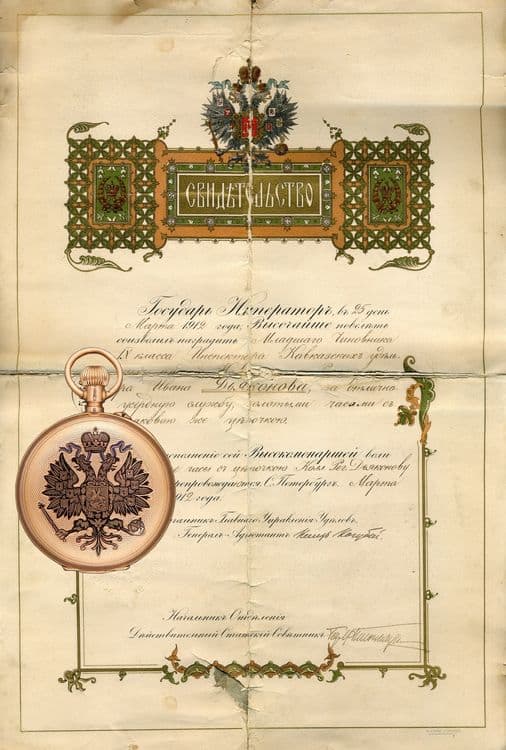 СВИДѢТЕЛЬСТВО
Государь Императоръ, въ 25 день
Марта 1912 года, Высочайше повелѣть
соизволилъ наградить Младшаго Чиновника
IX класса Инспектора Кавказскихъ удѣл.
Ивана Дьяконова, за отлично
усердную службу, золотыми часами съ
таковою же цѣпочкою.
сей Высокомонаршей воли
часы съ цѣпочкою Колл. Рег. Дьяконову
препровождаются. С. Петербургъ. Марта
1912 года.
Начальникъ Главнаго Управленія Удѣловъ,
Генералъ-Адъютантъ Князь Кочубей.
Начальникъ Отдѣленія
Дѣйствительный Статскій Совѣтникъ